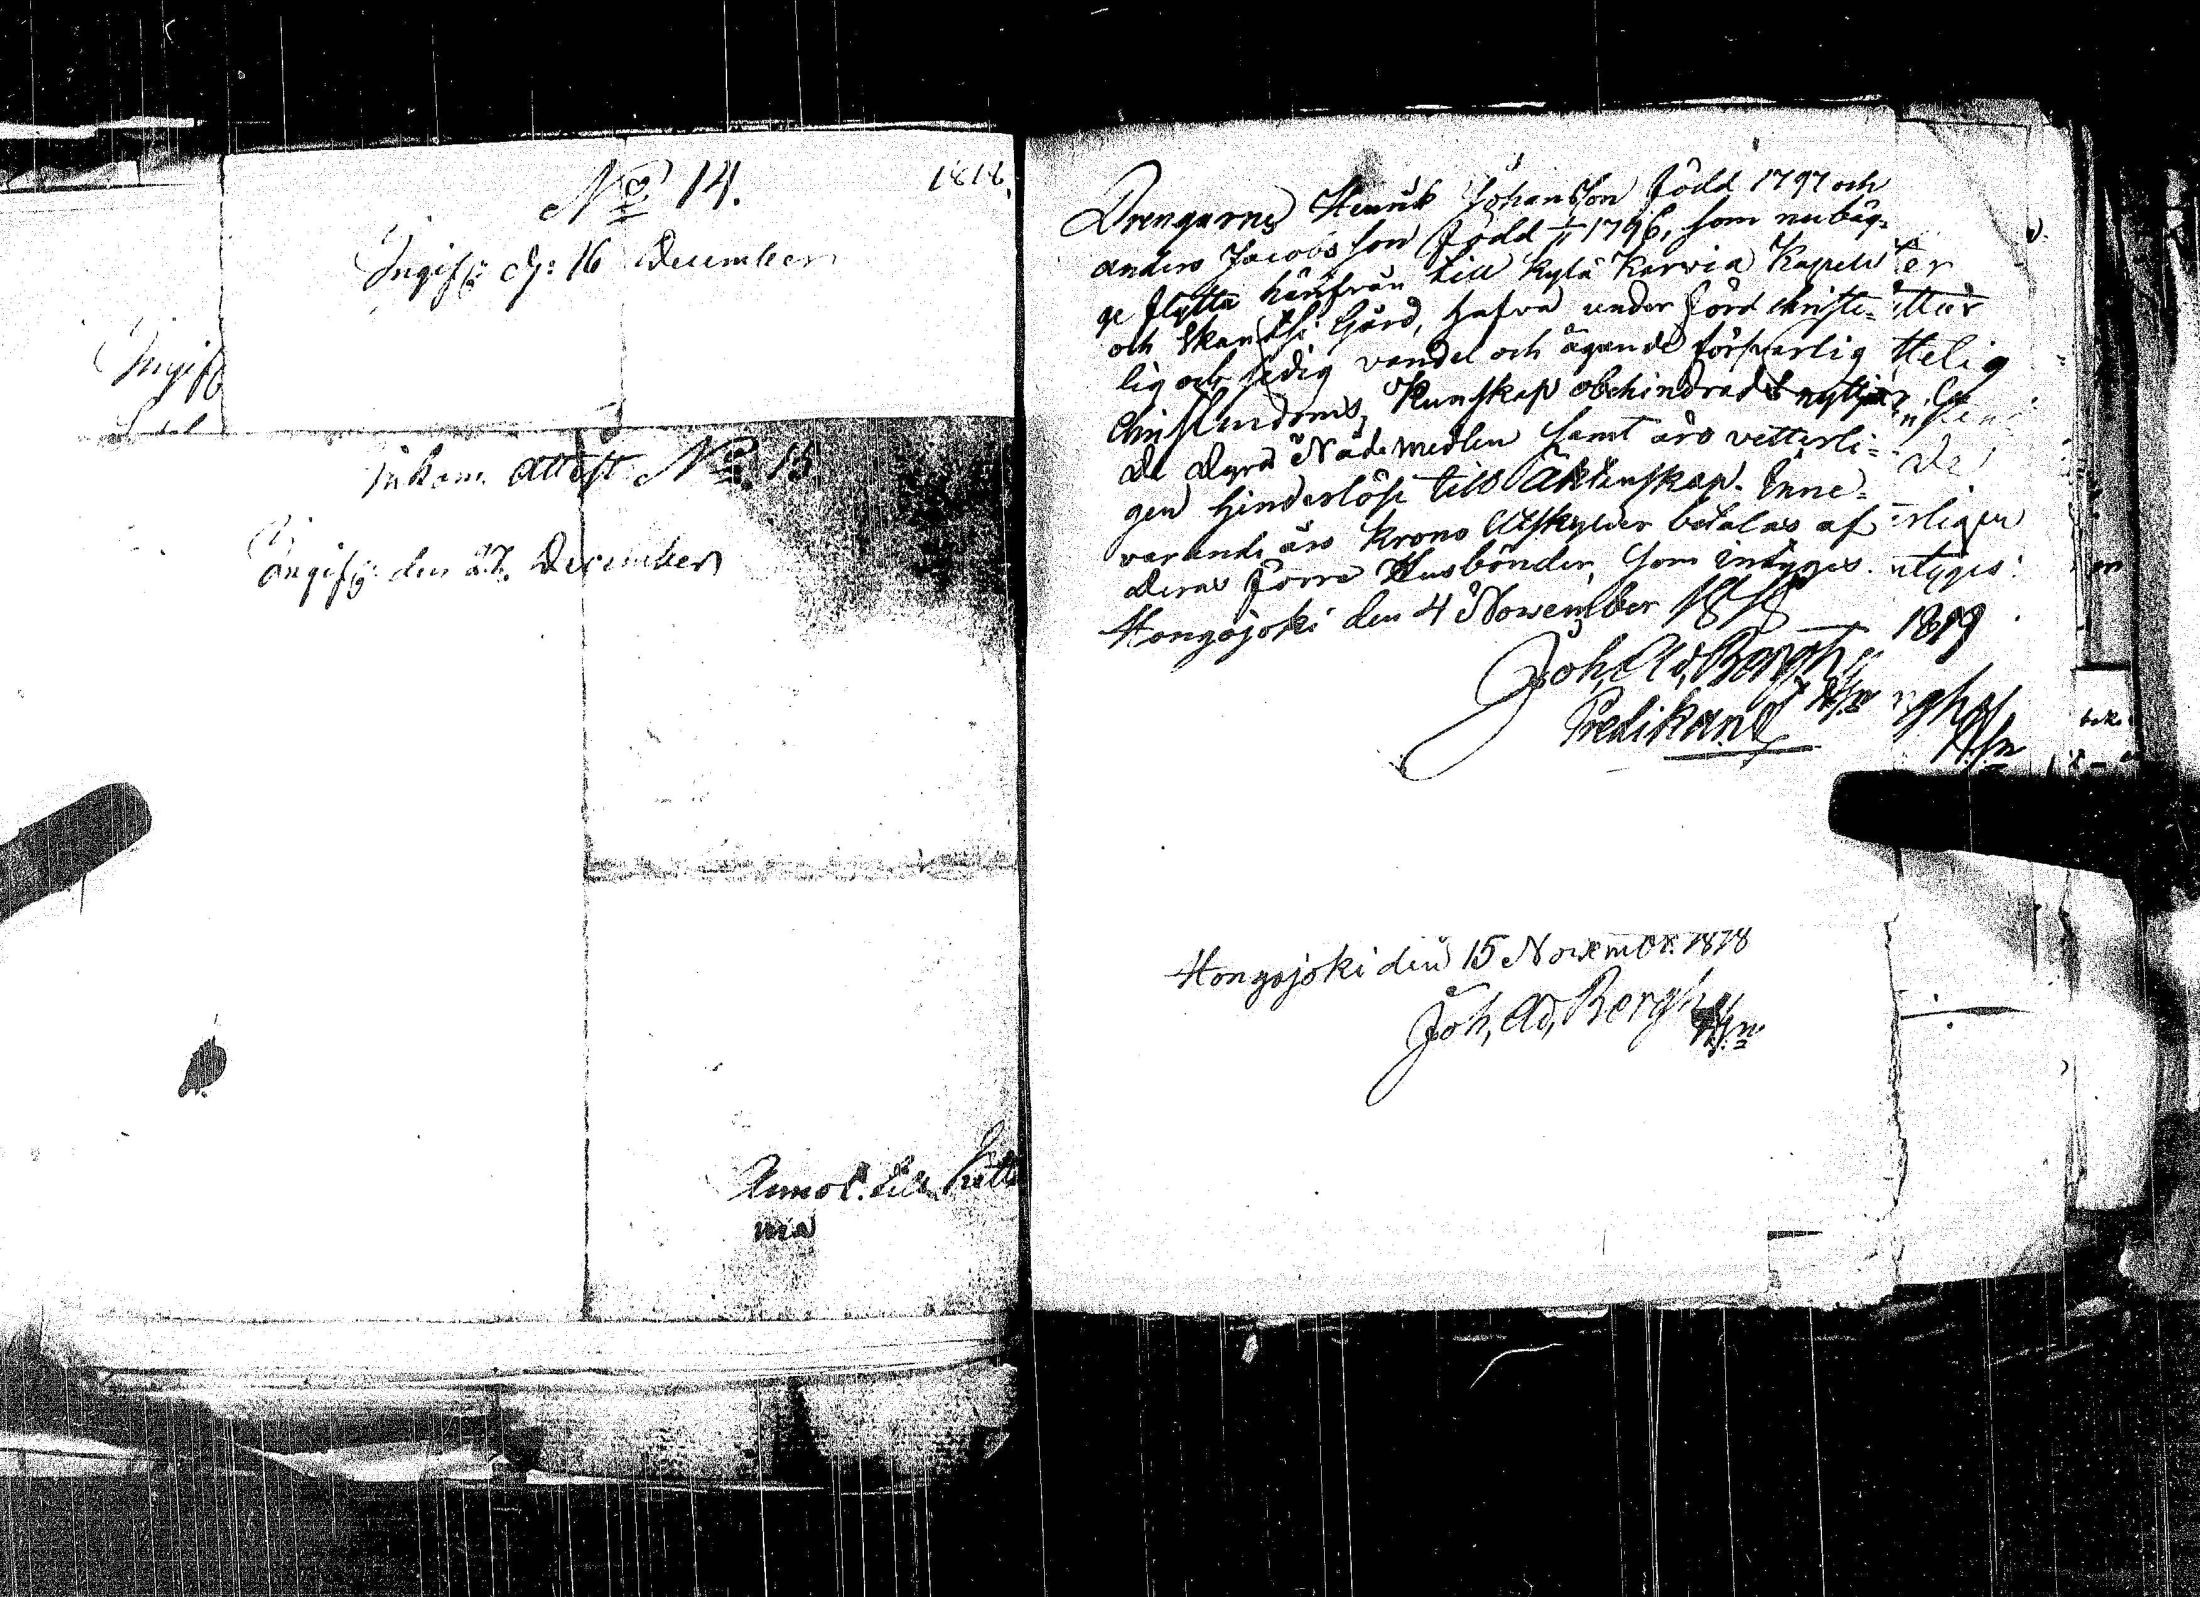 No 14.
1818.
Ingifv: d: 16 December
Ingifv
Inkom. Attest No 15
Ingifv: den 27. December
Annot. till
Drengarne Henrik Johansson född 1797 och
Anders Jacobsson född 1796, som nu begä-
ge flytta härifrån till Kylä Karvia Kapell
och Skantsi Gård, hafva under förd christe-
lig och sedig vandel och ägande försvarlig
Christendoms Kunskap obehindradt nyttjat
de dyra Nådemedlen samt äro vetterli-
gen hinderlöse till Äktenskap. Inne-
varande års Krono Utskylder betalas af
deras förra Husbönder, Som intyges.
Hongojoki den 4 November 1818
Joh, Ad, Bergh
Predikant
ttelig
erligen
ntyges:
1819
Hongojoki den 15 Novembr. 1818
Joh, Ad, Bergh